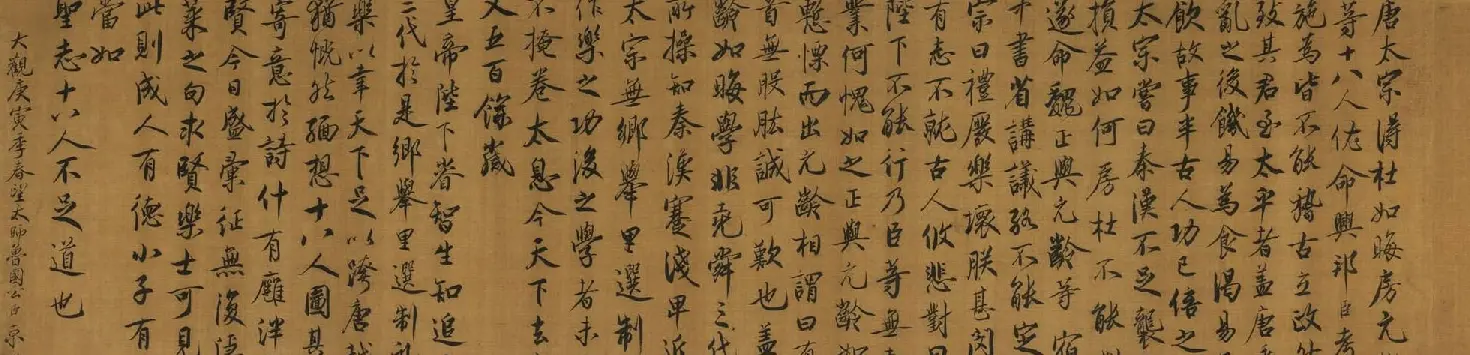 唐太宗得杜如晦房元
等十八人佐命興邦臣考
施為皆不能稽古立政
致其君至太平者蓋唐
亂之後饑易為食渴易
飲故事半古人功已倍之
太宗嘗曰秦漢不足襲
損益如何房杜不能對
遂命魏正與元齡等宿
中書省講議終不能定
宗曰禮廢樂壞朕甚閔
有志不就古人攸悲對曰
陛下不能行乃臣等無
業何愧如之正與元齡如
慙慄而出元齡相謂曰有
首無股肱誠可歎也蓋
齡如晦學非堯舜三代
所操知秦漢蹇淺卑近
太宗無鄉舉里選制
作樂之功後之學者未
不掩卷太息今天下去
又五百餘歲
皇帝陛下睿智生知追
三代於是鄉舉里選制礼
樂以幸天下足以跨唐越
猶慨然緬想十八人圖其
寄意於詩什有廱泮
賢今日盛彙征無復
萊之句求賢樂士可見
此則成人有德小子有
當如
聖志十八人不足道也
大觀庚寅季春望太師魯國公臣京